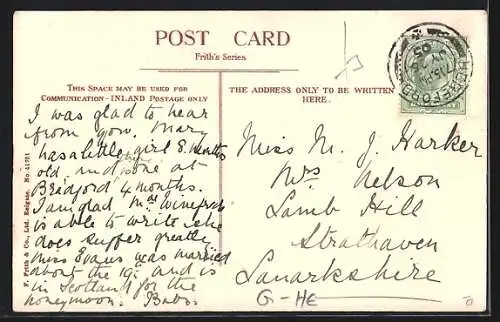 POST CARD
Frith's Series
THIS SPACE MAY BE USED FOR
COMMUNICATION - INLAND POSTAGE ONLY
THE ADDRESS ONLY TO BE WRITTEN
HERE.
I was glad to hear
from you. Mary
has a little girl 8. months
old. and one at
Bradford 4 months.
I am glad Winefred
is able to write she
does suffer greatly
Miss Evans was married
about the 19: and is
in Scotland for the
honeymoon.
Miss M. J. Harker
Mrs Nelson
Lamb Hill
Strathaven
Lanarkshire
G-HE
F. Frith & Co., Ltd., Reigate. No.